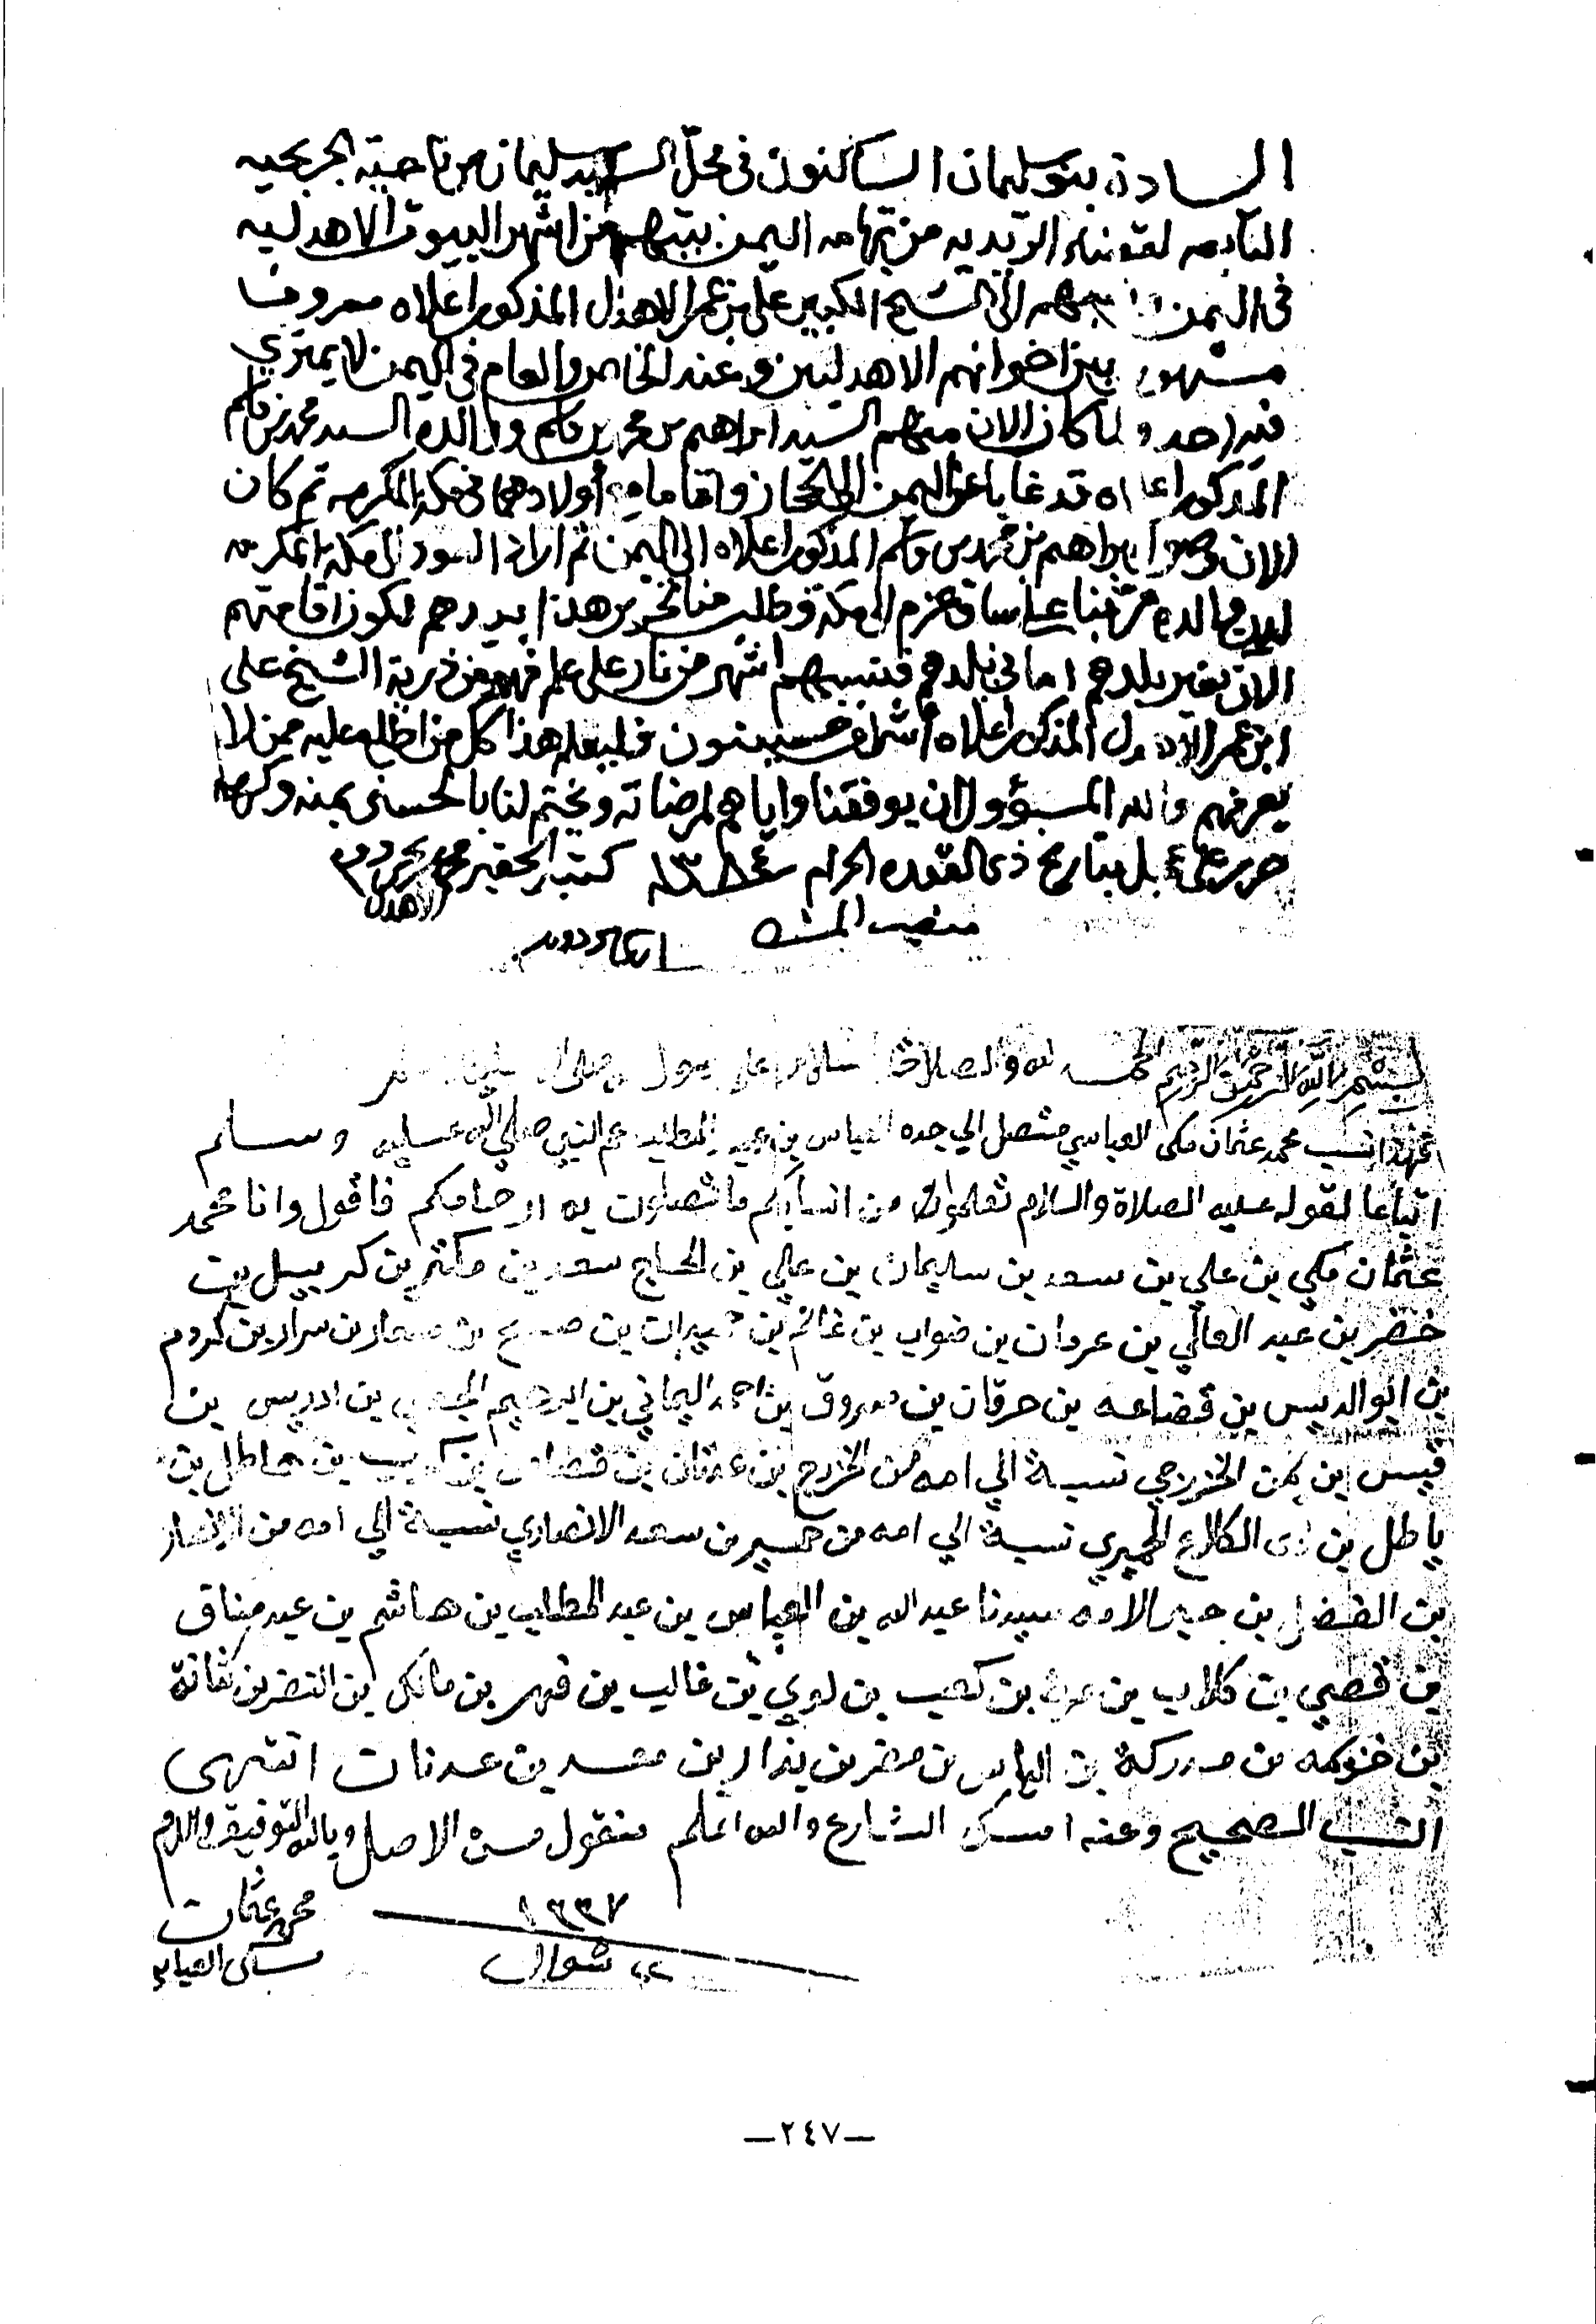 السادة بنو سليمان الساكنون في محل السيد سليمان من ناحية الجريحيه
التابعه لقضاء الزيديه من تهامه اليمن بيتهم من اشهر البيوت الاهدليه
في اليمن الى الشيخ الكبير علي بن عمر الاهدل المذكور اعلاه معروف
مشهور بين اخوانهم الاهدليين وعند الخاص والعام في اليمن لا يمتري
فيه احد ولما كان الان منهم السيد ابراهيم بن محمد بن قاسم ووالده السيد محمد بن قاسم
المذكور اعلاه قد غابا عن اليمن الى الحجاز واقاما أولادهما في مكة المكرمه ثم كان
الان ابراهيم بن محمد بن قاسم المذكور اعلاه الى اليمن ثم اراد العود الى مكة المكرمه
عزم الى مكة وطلب منا تحرير هذا بيدهم لكون اقامتهم
الآن بغير بلدهم اما في بلدهم فنسبهم اشهر من نار على علم فهم من ذرية الشيخ علي
ابن عمر الاهدل المذكور اعلاه أشراف حسينيون فليعلم هذا كل من اطلع عليه ممن لا
يعرفهم والله المسؤول ان يوفقنا واياهم لمرضاته ويختم لنا بالحسنى بمنه وكرمه
حرر بتاريخ ذي القعده الحرام ١٣٨٤ كتبه الحقير محمد
الاهدل
منصب
بسم الله الرحمن الرحيم الحمد لله والصلاة والسلام على رسول
فهذا نسب محمد عثمان مكي العباسي متصل الي جده العباس بن عبد المطلب عم النبي صلي الله عليه وسلم
اتباعا لقوله عليه الصلاة والسلام تعلموا من انسابكم ما تصلون به ارحامكم فاقول وانا محمد
عثمان مكي بن علي بن سعد بن سليمان بن علي بن الحاج سعد بن مكثر بن كربيل بن
خضر بن عبد العالي بن عرمان بن ضواب بن غانم بن حميدان بن صبح بن مسمار بن سرار بن كردم
بن ابو الديس بن قضاعه بن حرقان بن مسروق بن احمد اليماني بن ابراهيم الجعلي بن ادريس بن
قيس بن يمن الخزرجي نسبة الي امه من الخزرج بن عدنان بن قصاص بن كرب بن هاطل بن
ياطل بن ذي الكلاع الحميري نسبة الي امه من حمير بن سعد الانصاري نسبة الي امه من الانصار
بن الفضل بن حبر الامه سيدنا عبد الله بن العباس بن عبد المطلب بن هاشم بن عبد مناف
بن قصي بن كلاب بن مرة بن كعب بن لوي بن غالب بن فهر بن مالك بن النضر بن كنانة
بن خزيمه بن مدركة بن الياس بن مضر بن نزار بن معد بن عدنان انتهى
النسب الصحيح وعنه امسك الشارع والله اعلم منقول من الاصل وبالله التوفيق والسلام
١٣٣٧
شوال
محمد عثمان
مكي العباسي
—٢٤٧—